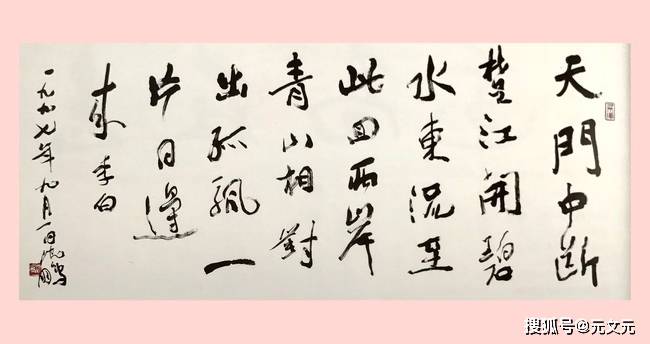 天門中断
楚江開碧
水東流至
此回两岸
青山相對
出孤颿一
片日邊
来 李白
一九九七年九月一日沈鵬
搜狐号@元文元